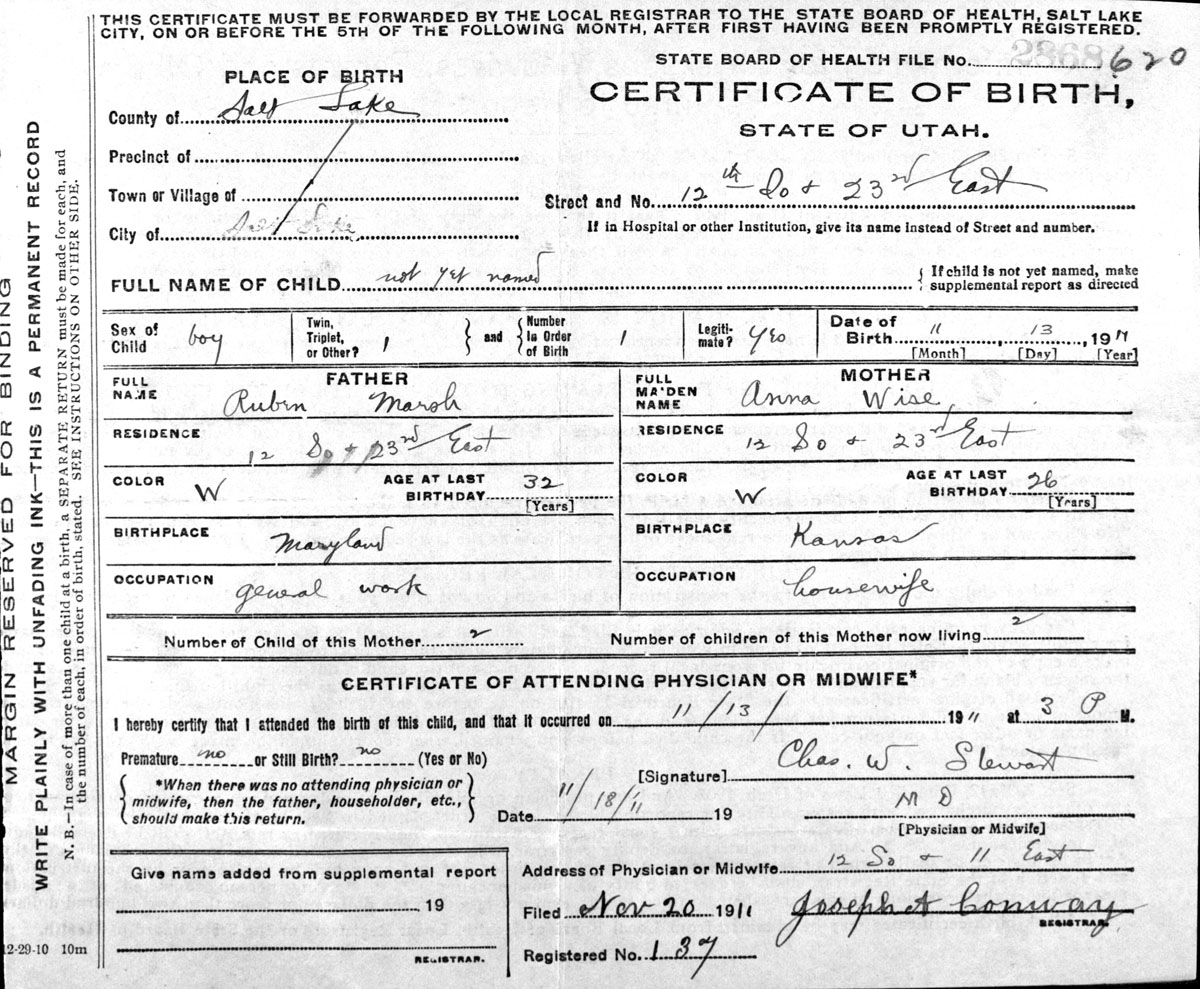 THIS CERTIFICATE MUST BE FORWARDED BY THE LOCAL REGISTRAR TO THE STATE BOARD OF HEALTH, SALT LAKE
CITY, ON OR BEFORE THE 5TH OF THE FOLLOWING MONTH, AFTER FIRST HAVING BEEN PROMPTLY REGISTERED.
STATE BOARD OF HEALTH FILE No. 620
PLACE OF BIRTH
CERTIFICATE OF BIRTH,
STATE OF UTAH.
County of Salt Lake
Precinct of
Town or Village of
Street and No. 12th So & 23rd East
City of Salt Lake
If in Hospital or other Institution, give its name instead of Street and number.
FULL NAME OF CHILD not yet named
{ If child is not yet named, make
supplemental report as directed
Sex of Child boy
Twin, Triplet, or Other? 1 } and { Number In Order of Birth 1
Legiti-mate? Yes
Date of Birth 11, 13, 1911
[Month] [Day] [Year]
FATHER
FULL NAME Ruben Marsh
RESIDENCE 12 So & 23rd East
COLOR W AGE AT LAST BIRTHDAY 32
[Years]
BIRTHPLACE Maryland
OCCUPATION general work
MOTHER
FULL MAIDEN NAME Anna Wise
RESIDENCE 12 So & 23rd East
COLOR W AGE AT LAST BIRTHDAY 26
[Years]
BIRTHPLACE Kansas
OCCUPATION housewife
Number of Child of this Mother 2 Number of children of this Mother now living 2
CERTIFICATE OF ATTENDING PHYSICIAN OR MIDWIFE*
I hereby certify that I attended the birth of this child, and that it occurred on 11/13/ 1911 at 3 P M.
Premature no or Still Birth? no (Yes or No)
{ *When there was no attending physician or
midwife, then the father, householder, etc.,
should make this return. }
[Signature] Chas. W. Stewart
Date 11/18/11 19 M D
[Physician or Midwife]
Give name added from supplemental report
19
REGISTRAR.
Address of Physician or Midwife 12 So & 11 East
Filed Nov 20 1911 Joseph A Conway
REGISTRAR.
Registered No. 137
12-29-10 10m
MARGIN RESERVED FOR BINDING
WRITE PLAINLY WITH UNFADING INK—THIS IS A PERMANENT RECORD
N. B.—In case of more than one child at a birth, a SEPARATE RETURN must be made for each, and
the number of each, in order of birth, stated. SEE INSTRUCTIONS ON OTHER SIDE.